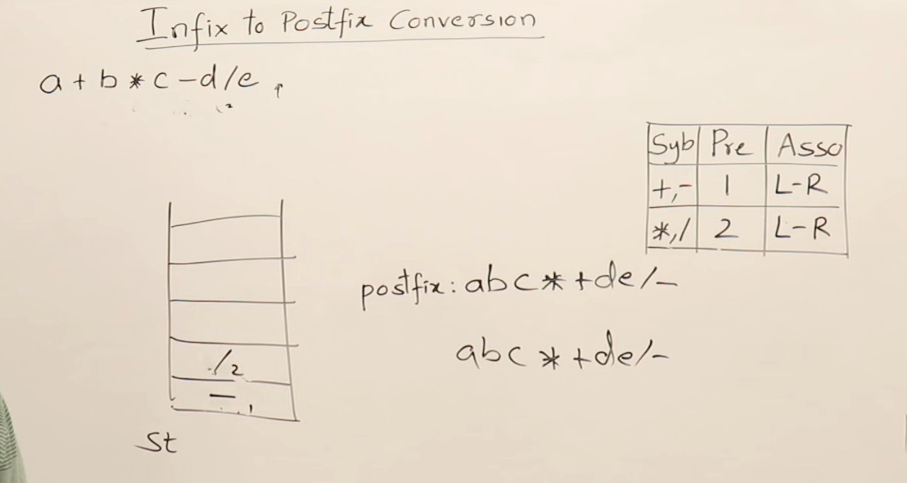 Infix to Postfix Conversion
a + b * c - d / e
Syb Pre Asso
+,- 1 L-R
*,/ 2 L-R
postfix: abc*+de/-
abc*+de/-
/ 2
- 1
St